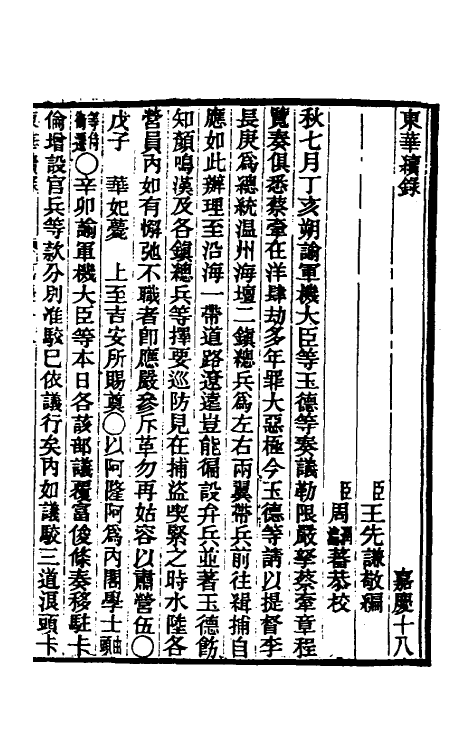 東華續錄 嘉慶十八
臣王先謙敬編
臣周潤蕃恭校
秋七月丁亥朔諭軍機大臣等玉德等奏議勒限嚴拏蔡牽章程
覽奏俱悉蔡牽在洋肆劫多年罪大惡極今玉德等請以提督李
長庚爲總統温州海壇二鎭總兵爲左右兩翼帶兵前往緝捕自
應如此辦理至沿海一帶道路遼遠豈能徧設弁兵並著玉德飭
知顏鳴漢及各鎭總兵等擇要巡防見在捕盜喫緊之時水陸各
營員內如有懈弛不職者卽應嚴參斥革勿再姑容以肅營伍〇
戊子 華妃薨 上至吉安所賜奠〇以阿隆阿爲內閣學士由頭
等侍衞遷〇辛卯諭軍機大臣等本日各該部議覆富俊條奏移駐卡
倫增設官兵等款分別准駁巳依議行矣內如議駁三道浪頭卡